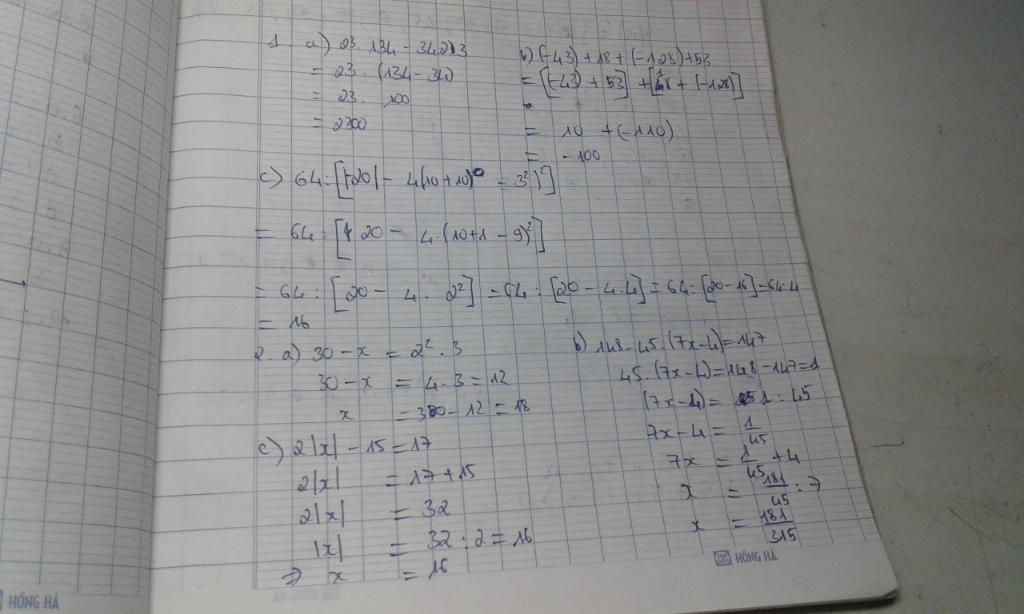 1. a) 23.134 - 34.23
= 23. (134 - 34)
= 23. 100
= 2300
b) (-43) + 18 + (-128) + 53
= [(-43) + 53] + [18 + (-128)]
= 10 + (-110)
= -100
c) 64 : [|-20| - 4(10+10⁰ - 3²)²]
= 64 : [20 - 4.(10+1 - 9)²]
= 64 : [20 - 4. 2²] = 64 : [20 - 4.4] = 64 : [20 - 16] = 64 : 4
= 16
2. a) 30 - x = 2². 3
30 - x = 4. 3 = 12
x = 30 - 12 = 18
b) 148 - 45.(7x-4) = 147
45.(7x-4) = 148 - 147 = 1
(7x-4) = 1 : 45
7x - 4 = 1/45
7x = 1/45 + 4
x = 181/45 : 7
x = 181/315
c) 2|x| - 15 = 17
2|x| = 17 + 15
2|x| = 32
|x| = 32 : 2 = 16
=> x = 16
HỒNG HÀ
HỒNG HÀ